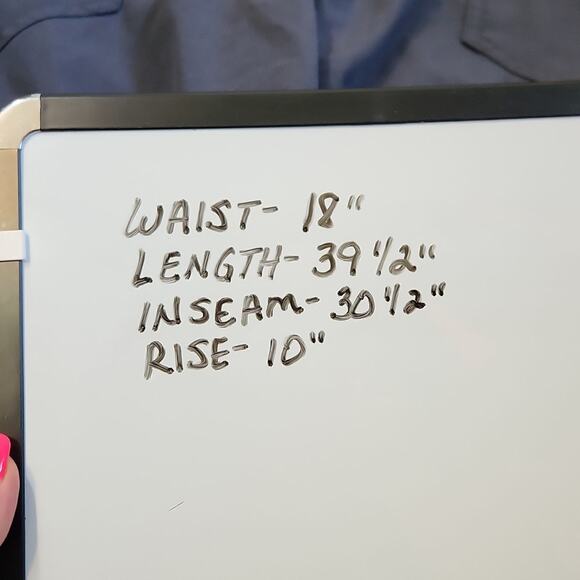 WAIST- 18"
LENGTH- 39 1/2"
INSEAM- 30 1/2"
RISE- 10"